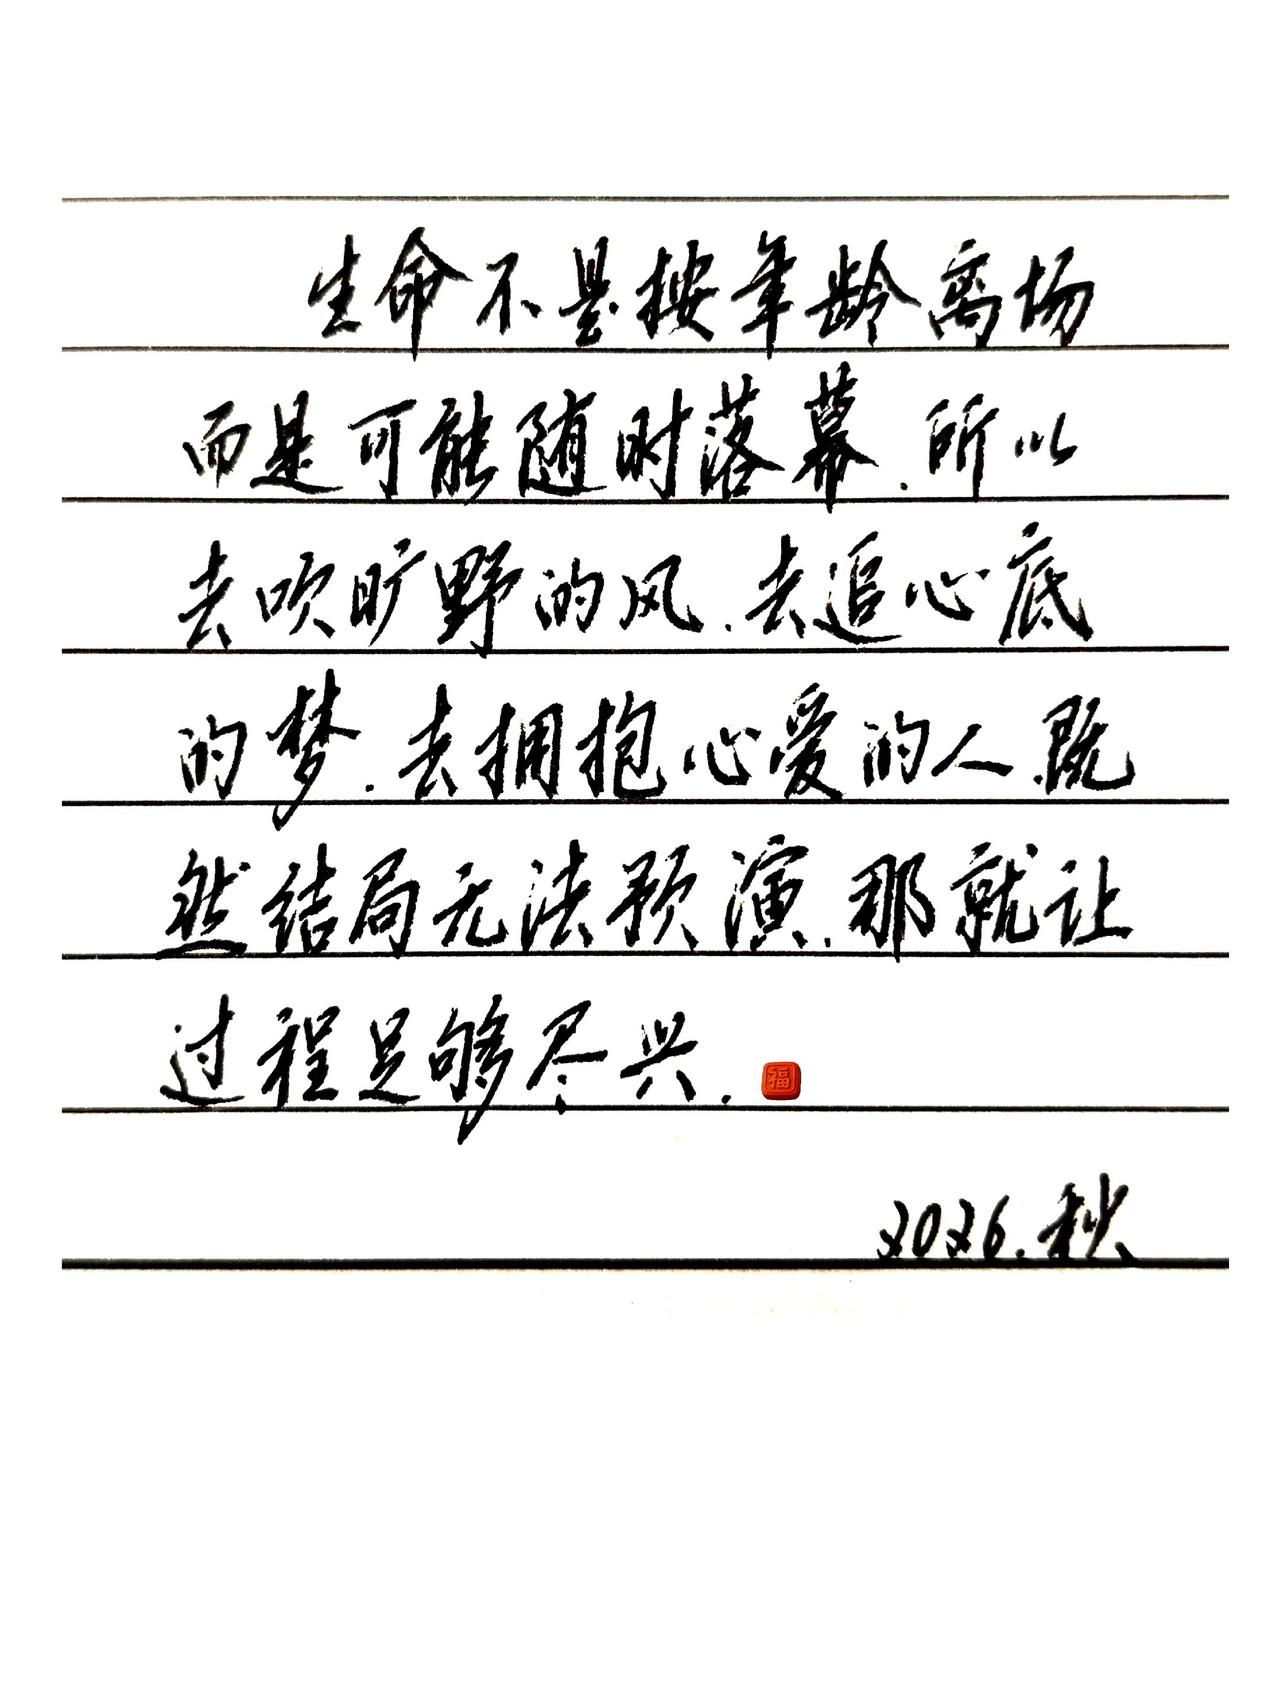 生命不是按年龄离场
而是可能随时落幕.所以
去吹旷野的风.去追心底
的梦.去拥抱心爱的人.既
然结局无法预演.那就让
过程足够尽兴.福
2026.秋